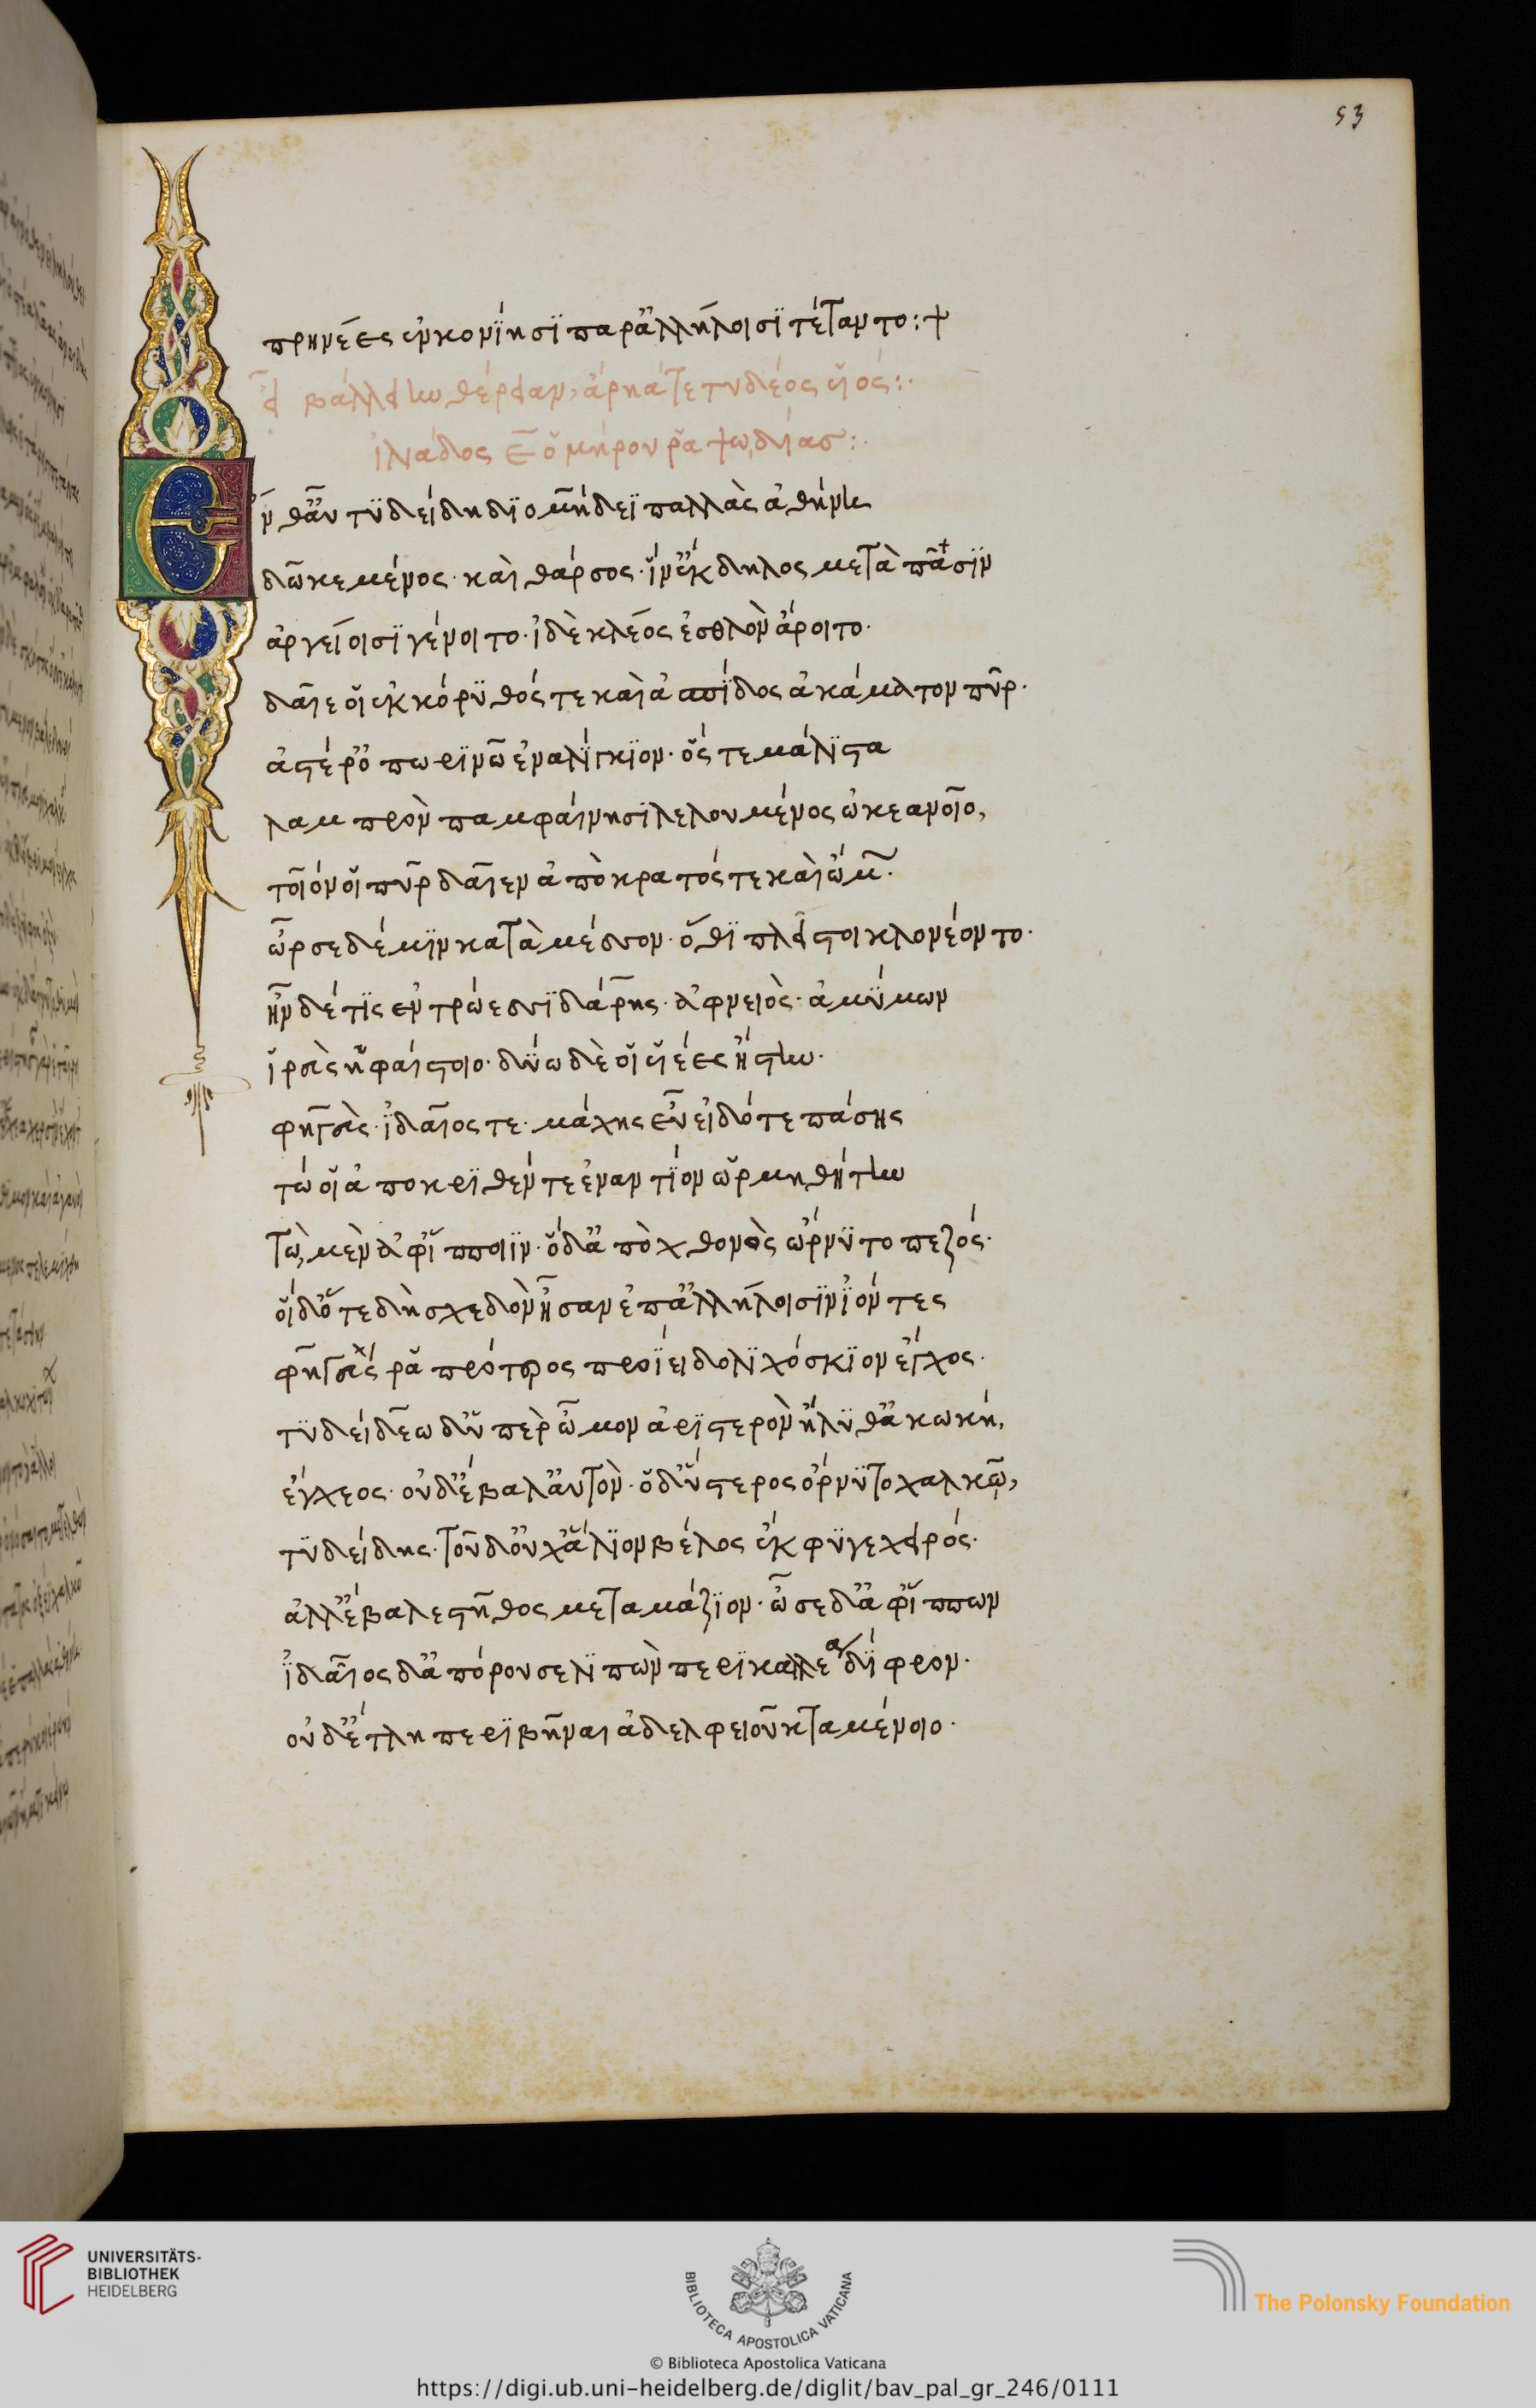 53
πρηνέες ἐν κονίῃσϊ παρ' ἀλλήλοισϊ τέταντο:+
εἶ βάλλει κυθέρειαν, ἄρηά τε τυδέος υἱός:·
ἰλιάδος Ε ὁμήρου ῥαψωδίας:·
Ε
ἔνθ' αὖ τυδείδη διομήδεϊ παλλὰς ἀθήνη
δῶκε μένος· καὶ θάρσος· ἵν' ἔκδηλος μετὰ πᾶσιν
ἀργείοισϊ γένοιτο· ἰδὲ κλέος ἐσθλὸν ἄροιτο·
δαῖε οἱ ἐκ κόρυθός τε καὶ ἀσπίδος ἀκάματον πῦρ·
ἀστέρ' ὀπωρινῶ ἐναλίγκιον· ὅς τε μάλιστα
λαμπρὸν παμφαίνησι λελουμένος ὠκεανοῖο,
τοῖόν οἱ πῦρ δαῖεν ἀπὸ κρατός τε καὶ ὤμ·
ὦρσε δέ μιν κατὰ μέσσον· ὅθι πλεῖστοι κλονέοντο·
ἦν δέ τις ἐν τρώεσσι δάρης· ἀφνειὸς· ἀμύμων
ἱρεὺς ἡφαίστοιο· δύω δὲ οἱ υἱέες ἤστην·
φηγεὺς· ἰδαῖος τε· μάχης εὖ εἰδότε πάσης
τώ οἱ ἀποκρινθέντε ἐναντίον ὡρμηθήτην
τὼ μὲν ἀφ' ἵπποιιν· ὁ δ' ἀπὸ χθονὸς ὤρνυτο πεζός·
οἱ δ' ὅτε δὴ σχεδὸν ἦσαν ἐπ' ἀλλήλοισιν ἰόντες
φηγεύς ῥα πρότερος προΐει δολιχόσκιον ἔγχος·
τυδείδεω δ' ὑπὲρ ὦμον ἀριστερὸν ἤλυθ' ἀκωκή,
ἔγχεος· οὐδ' ἔβαλ' αὐτὸν· ὁ δ' ὕστερος ὄρνυτο χαλκῶ,
τυδείδης· τοῦ δ' οὐχ ἅλιον βέλος ἔκφυγε χειρός·
ἀλλ' ἔβαλε στῆθος μεταμάζιον· ὦσε δ' ἀφ' ἵππων
ἰδαῖος δ' ἀπόρουσε λιπὼν περικαλλέα δίφρον·
οὐδ' ἔτλη περιβῆναι ἀδελφειοῦ κταμένοιο·
UNIVERSITÄTS-
BIBLIOTHEK
HEIDELBERG
BIBLIOTECA APOSTOLICA VATICANA
© Biblioteca Apostolica Vaticana
The Polonsky Foundation
https://digi.ub.uni-heidelberg.de/diglit/bav_pal_gr_246/0111